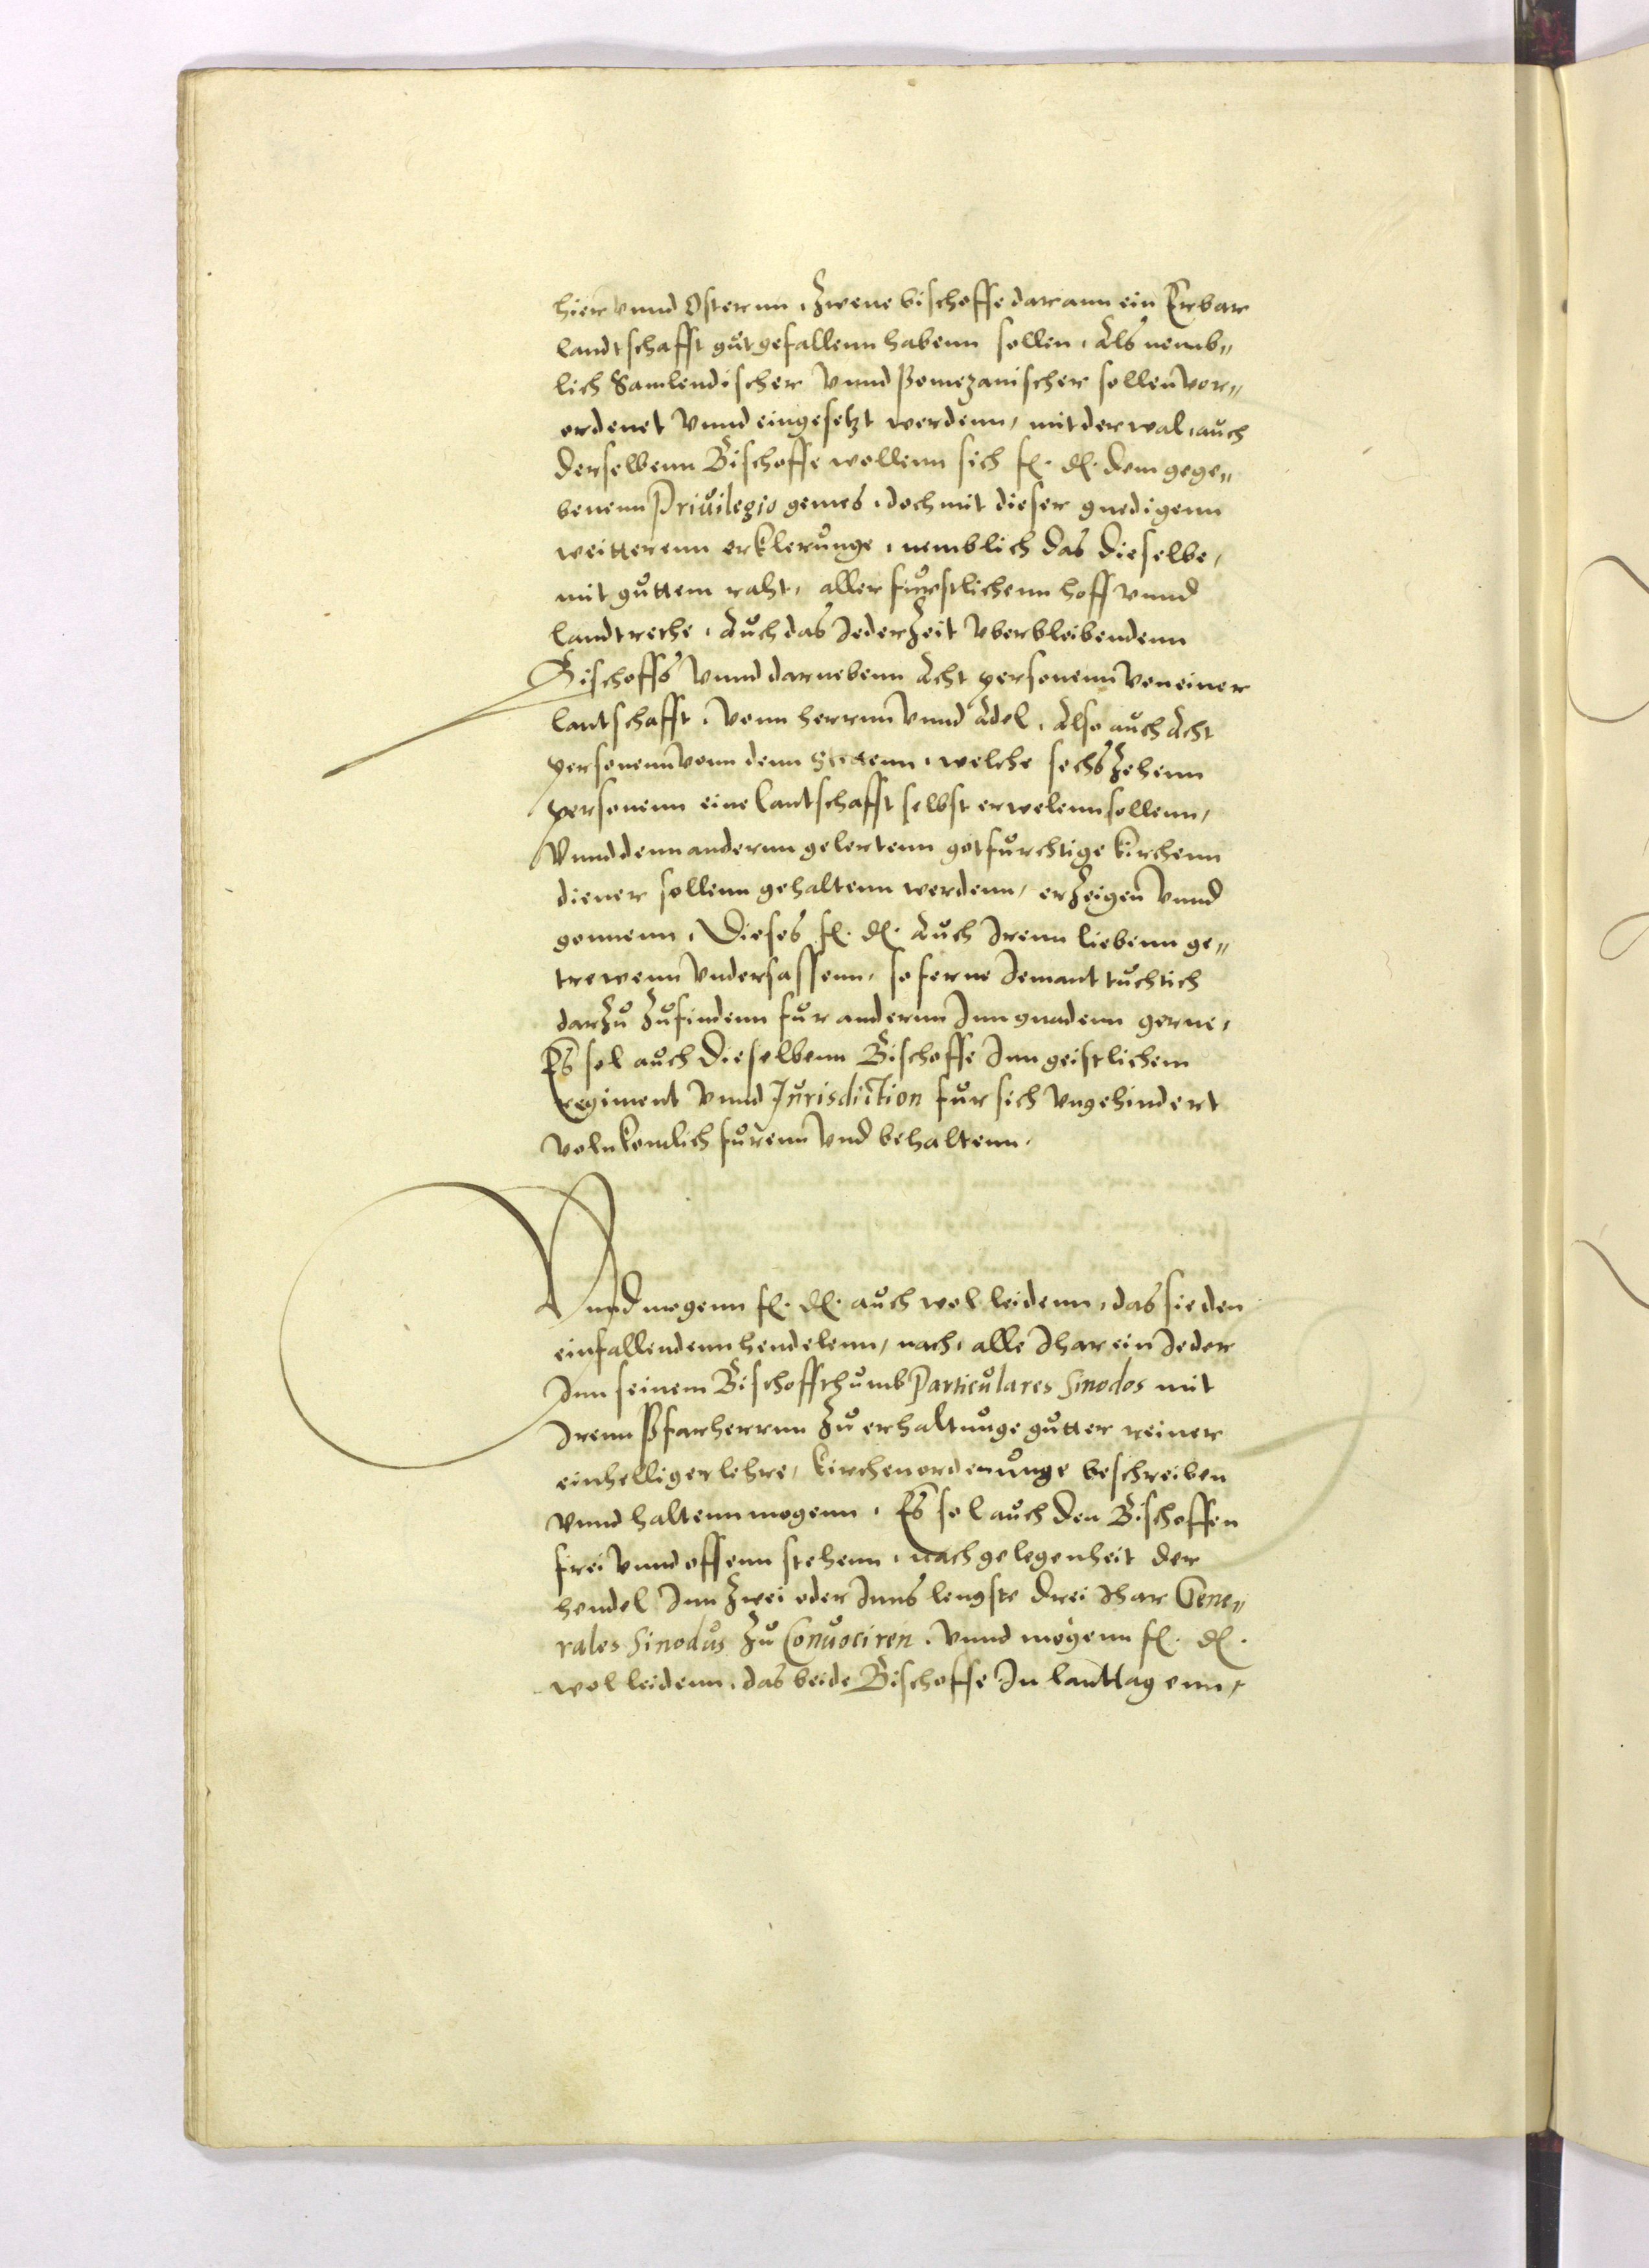 hier vnnd Osternn, Zwene bischoffe darann ein Erbar
landtschafft gůtgefallenn habenn sollen, Als nemb„
lich Samlendischer vnnd Pomezanischer sollen vor„
ordenet vnnd eingesetzt werdenn, mit der wal, aůch
derselbenn Bischoffe wollenn sich fl. dl. dem gege„
benenn Priůilegio gemes, doch mit dieser gnedigenn
weitterenn erklerůnge, nemblich das dieselbe,
mit gůttem raht, aller fůrstlichenn hoff vnnd
landtrethe, Aůch das Jederzeit vberbleibendenn
Bischoffs vnnd darnebenn Acht personenn von einer
lantschafft, vonn herrnn vnnd Adel, Also aůch Acht
personenn vonn denn Stettenn, welche sechszehenn
personenn eine lantschafft selbst erwelenn sollenn,
Vnnd denn andernn gelertenn gotfůrchtige kirchenn
diener sollenn gehaltenn werdenn, erzeigen vnnd
gonnenn, Dieses fl. dl. Aůch Jrenn liebenn ge„
trewenn vndersassenn, so ferne Jemant tůchtich
darzů zůfindenn fůr andernn Jnn gnadenn gerne,
Es sol aůch dieselbenn Bischoffe Jnn geistlichem
regiment vnnd Jůrisdiction fůr sich vngehindert
volnkomlich fůrenn vnd behaltenn.
Vnnd mogenn fl. dl. aůch wol leidenn, das sie den
einfallendenn hendelenn, nach, alle Jhar ein Jeder
Jnn seinem Bischoffthůmb Particůlares Sinodos mit
Jrenn Pfarherrnn zů erhaltůnge gůtter reiner
einhelliger lehre, kirchenordenůnge beschreiben
vnnd haltenn mogenn. Es sol aůch den Bischoffen
frei vnnd offenn stehenn, nach gelegenheit der
hendel Jnn zwei oder Jnns lengste drei Jhar Gene„
rales Sinodůs zů Conůociren. vnnd mögenn fl. dl.
wol leidenn, das beide Bischoffe Jn lanttagenn,